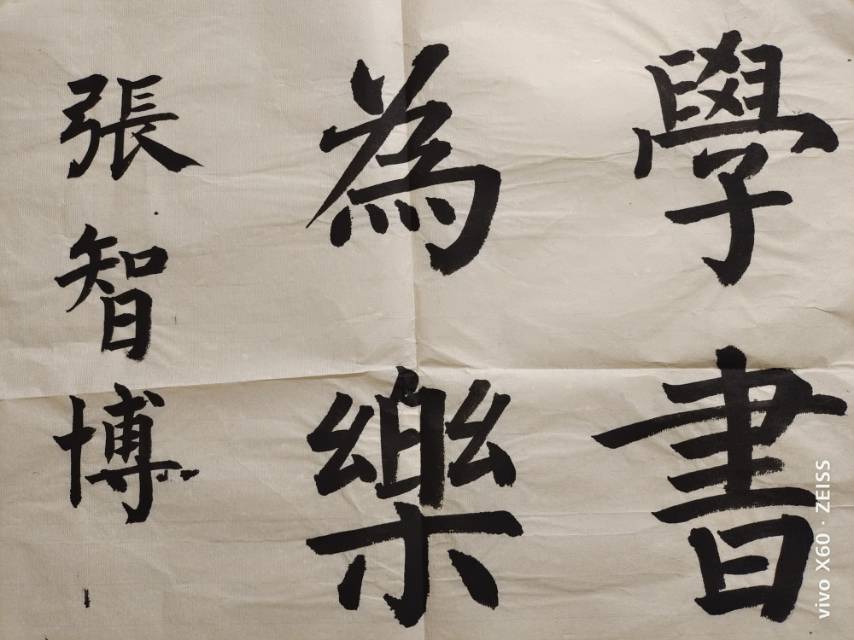 學書
為樂
張智博
vivo X60 · ZEISS